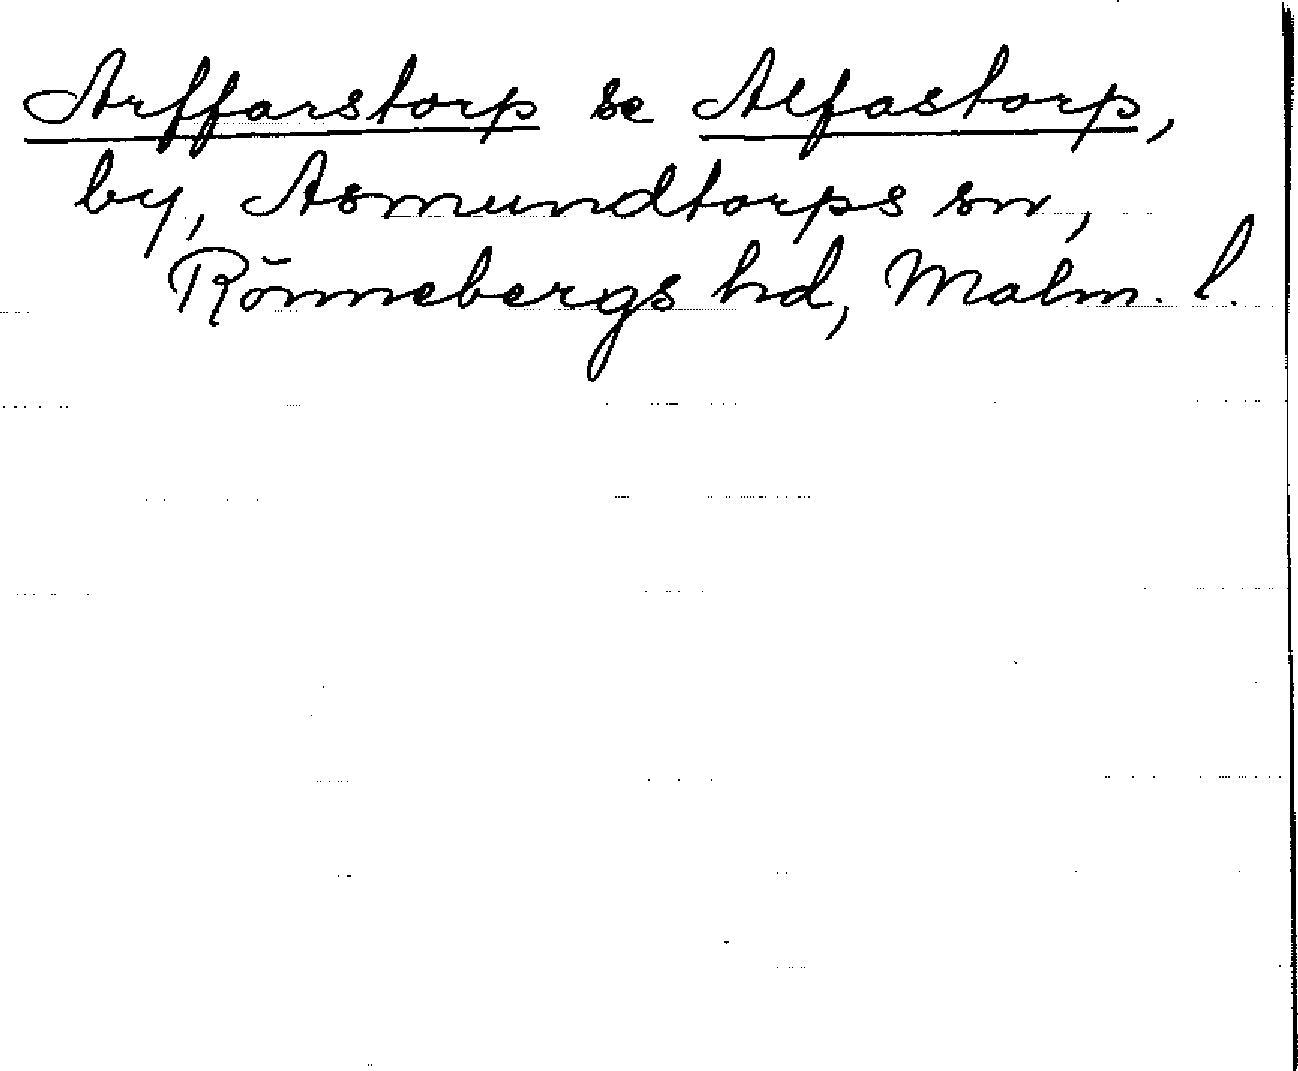 Arffarstorp se Alfastorp,
by, Asmundtorps sn,
Rönnebergs hd, Malm. l.